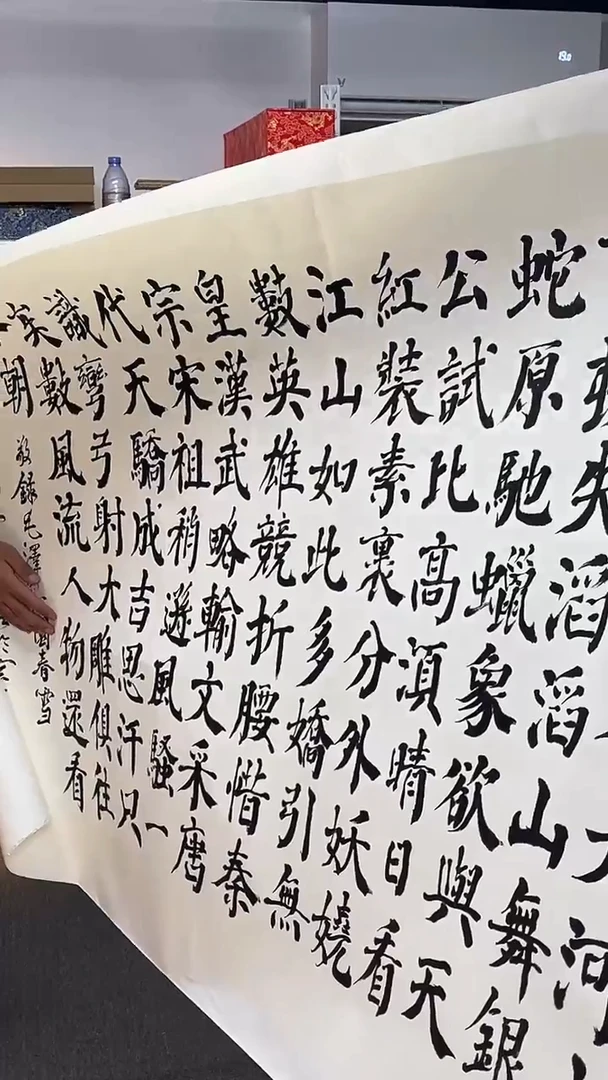 大河
失滔滔山舞銀
蛇原馳蠟象欲與天
公試比高須晴日看
紅裝素裹分外妖嬈
江山如此多嬌引無
數英雄競折腰惜秦
皇漢武略輸文采唐
宗宋祖稍遜風騷一
代天驕成吉思汗只
識彎弓射大雕俱往
矣數風流人物還看
朝
敬錄毛澤 春雪